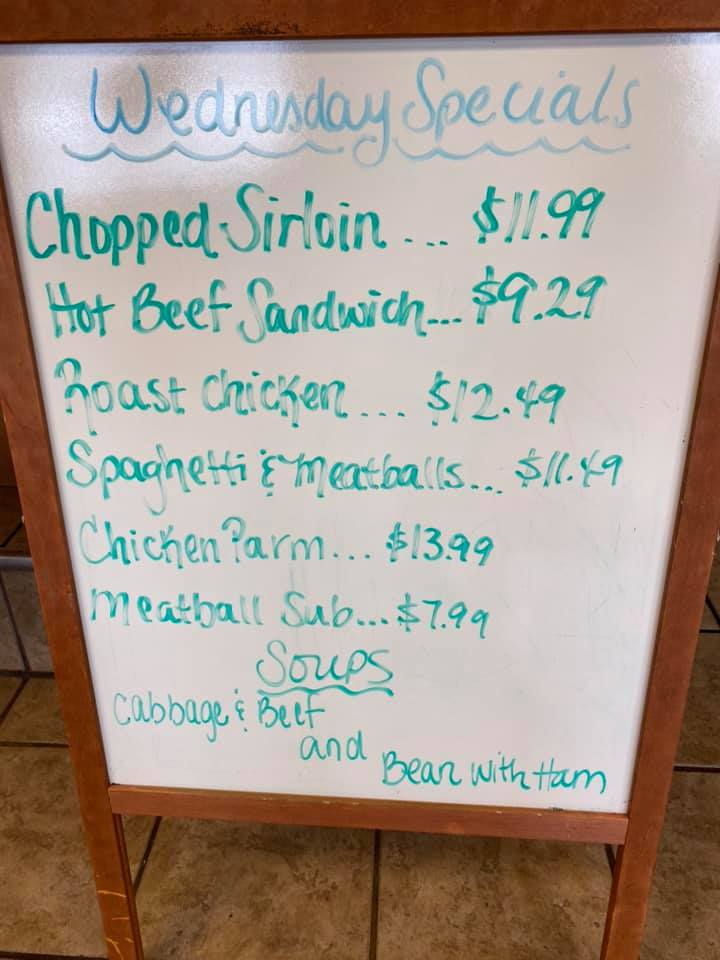 Wednesday Specials
Chopped Sirloin ... $11.99
Hot Beef Sandwich... $9.29
Roast Chicken ... $12.49
Spaghetti & Meatballs... $11.49
Chicken Parm... $13.99
Meatball Sub... $7.99
Soups
Cabbage & Beef
and
Bean with Ham